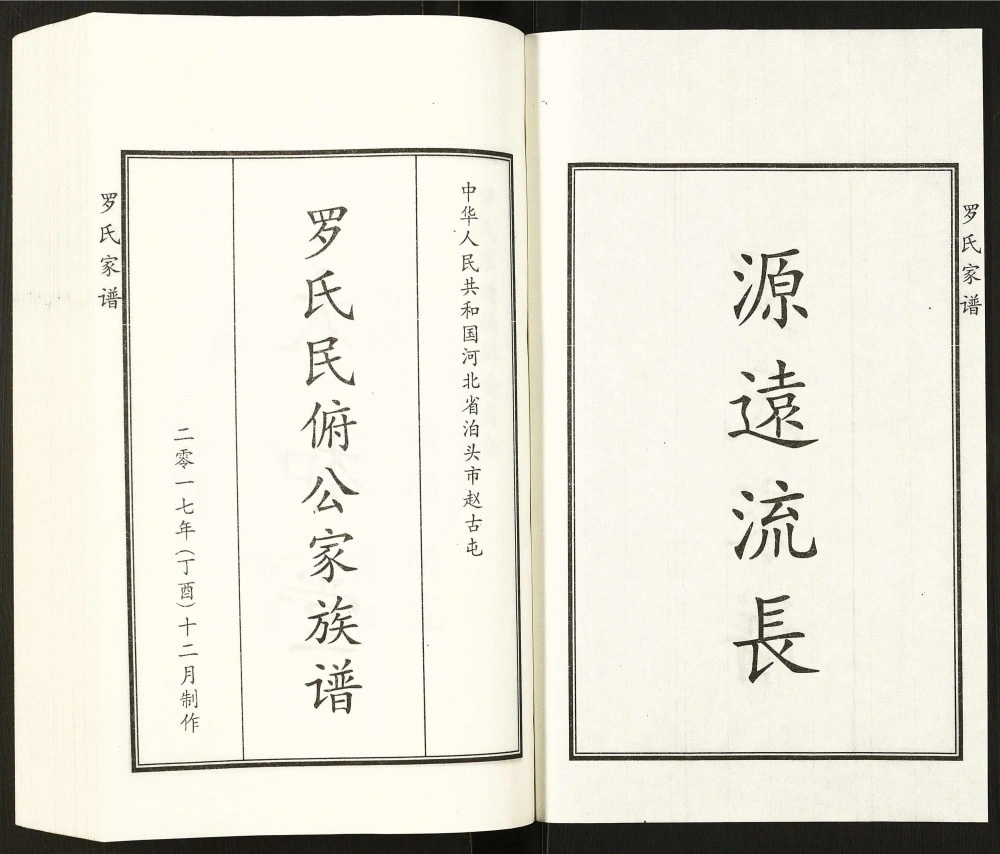 罗氏家谱
源遠流長
中华人民共和国河北省泊头市赵古屯
罗氏民俯公家族谱
二零一七年(丁酉)十二月制作
罗氏家谱